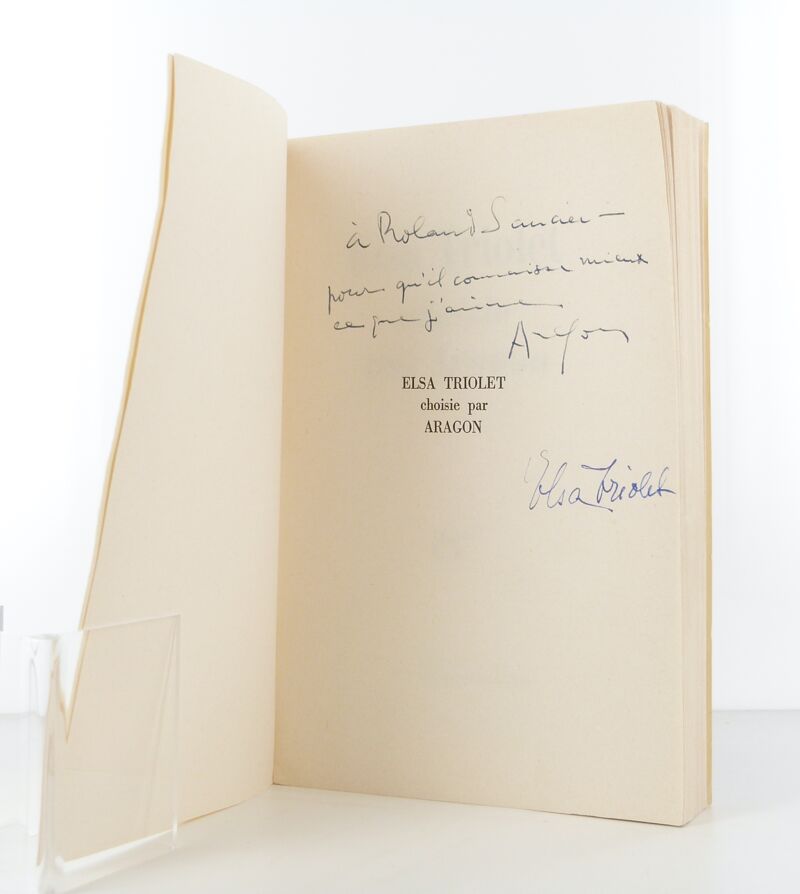 à Roland Saucier —
pour qu'il connaisse mieux
ce que j'aime
Aragon
ELSA TRIOLET
choisie par
ARAGON
Elsa Triolet